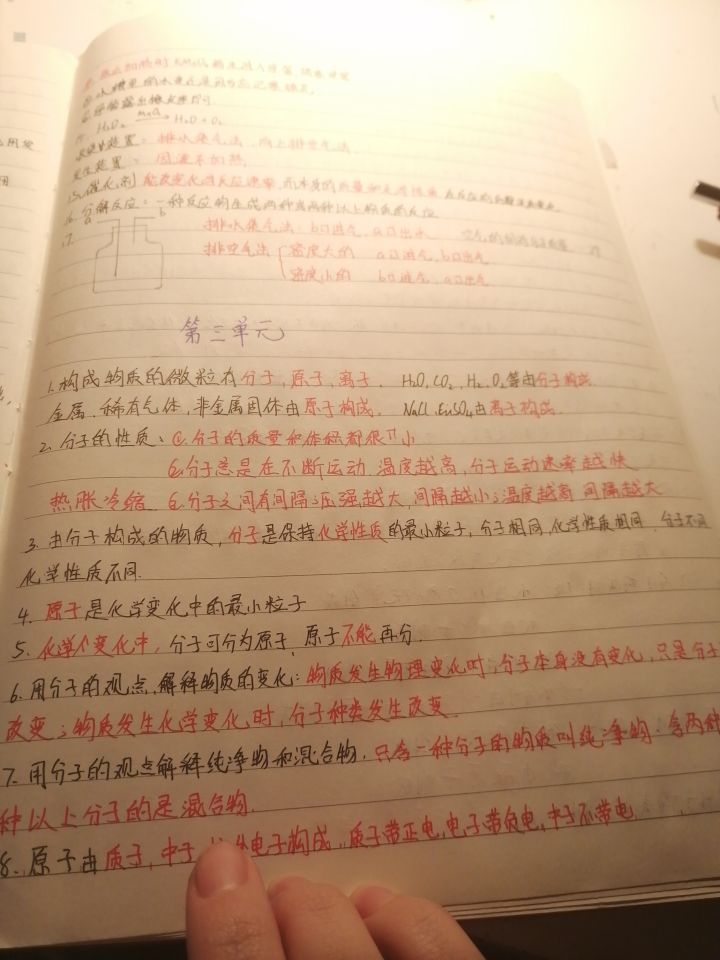 H₂O₂ MnO₂ H₂O + O₂
收集装置：排水集气法，向上排空气法
发生装置：固液不加热
15. 催化剂 能改变化学反应速率,而本身的质量和化学性质在反应前后
16. 分解反应：一种反应物生成两种或两种以上物质的反应
17. a b 排水集气法：b口进气，a口出水
排空气法 密度大的 a口进气，b口出气
密度小的 b口进气，a口出气
第三单元
1. 构成物质的微粒有分子，原子，离子． H₂O，CO₂，H₂，O₂等由分子构成．
金属，稀有气体，非金属固体由原子构成． NaCl，CuSO₄由离子构成．
2. 分子的性质：①分子的质量和体积都很小
②分子总是在不断运动．温度越高，分子运动速率越快
热胀冷缩 ③分子之间有间隔；压强越大，间隔越小；温度越高 间隔越大
3. 由分子构成的物质，分子是保持化学性质的最小粒子，分子相同，化学性质相同，分子不同
化学性质不同．
4. 原子是化学变化中的最小粒子
5. 化学变化中，分子可分为原子，原子不能再分．
6. 用分子的观点，解释物质的变化：物质发生物理变化时，分子本身没有变化，只是分子
改变；物质发生化学变化时，分子种类发生改变．
7. 用分子的观点解释纯净物和混合物．只含一种分子的物质叫纯净物：含两种
种以上分子的是混合物．
8. 原子由质子，中子 电子构成．质子带正电，电子带负电，中子不带电